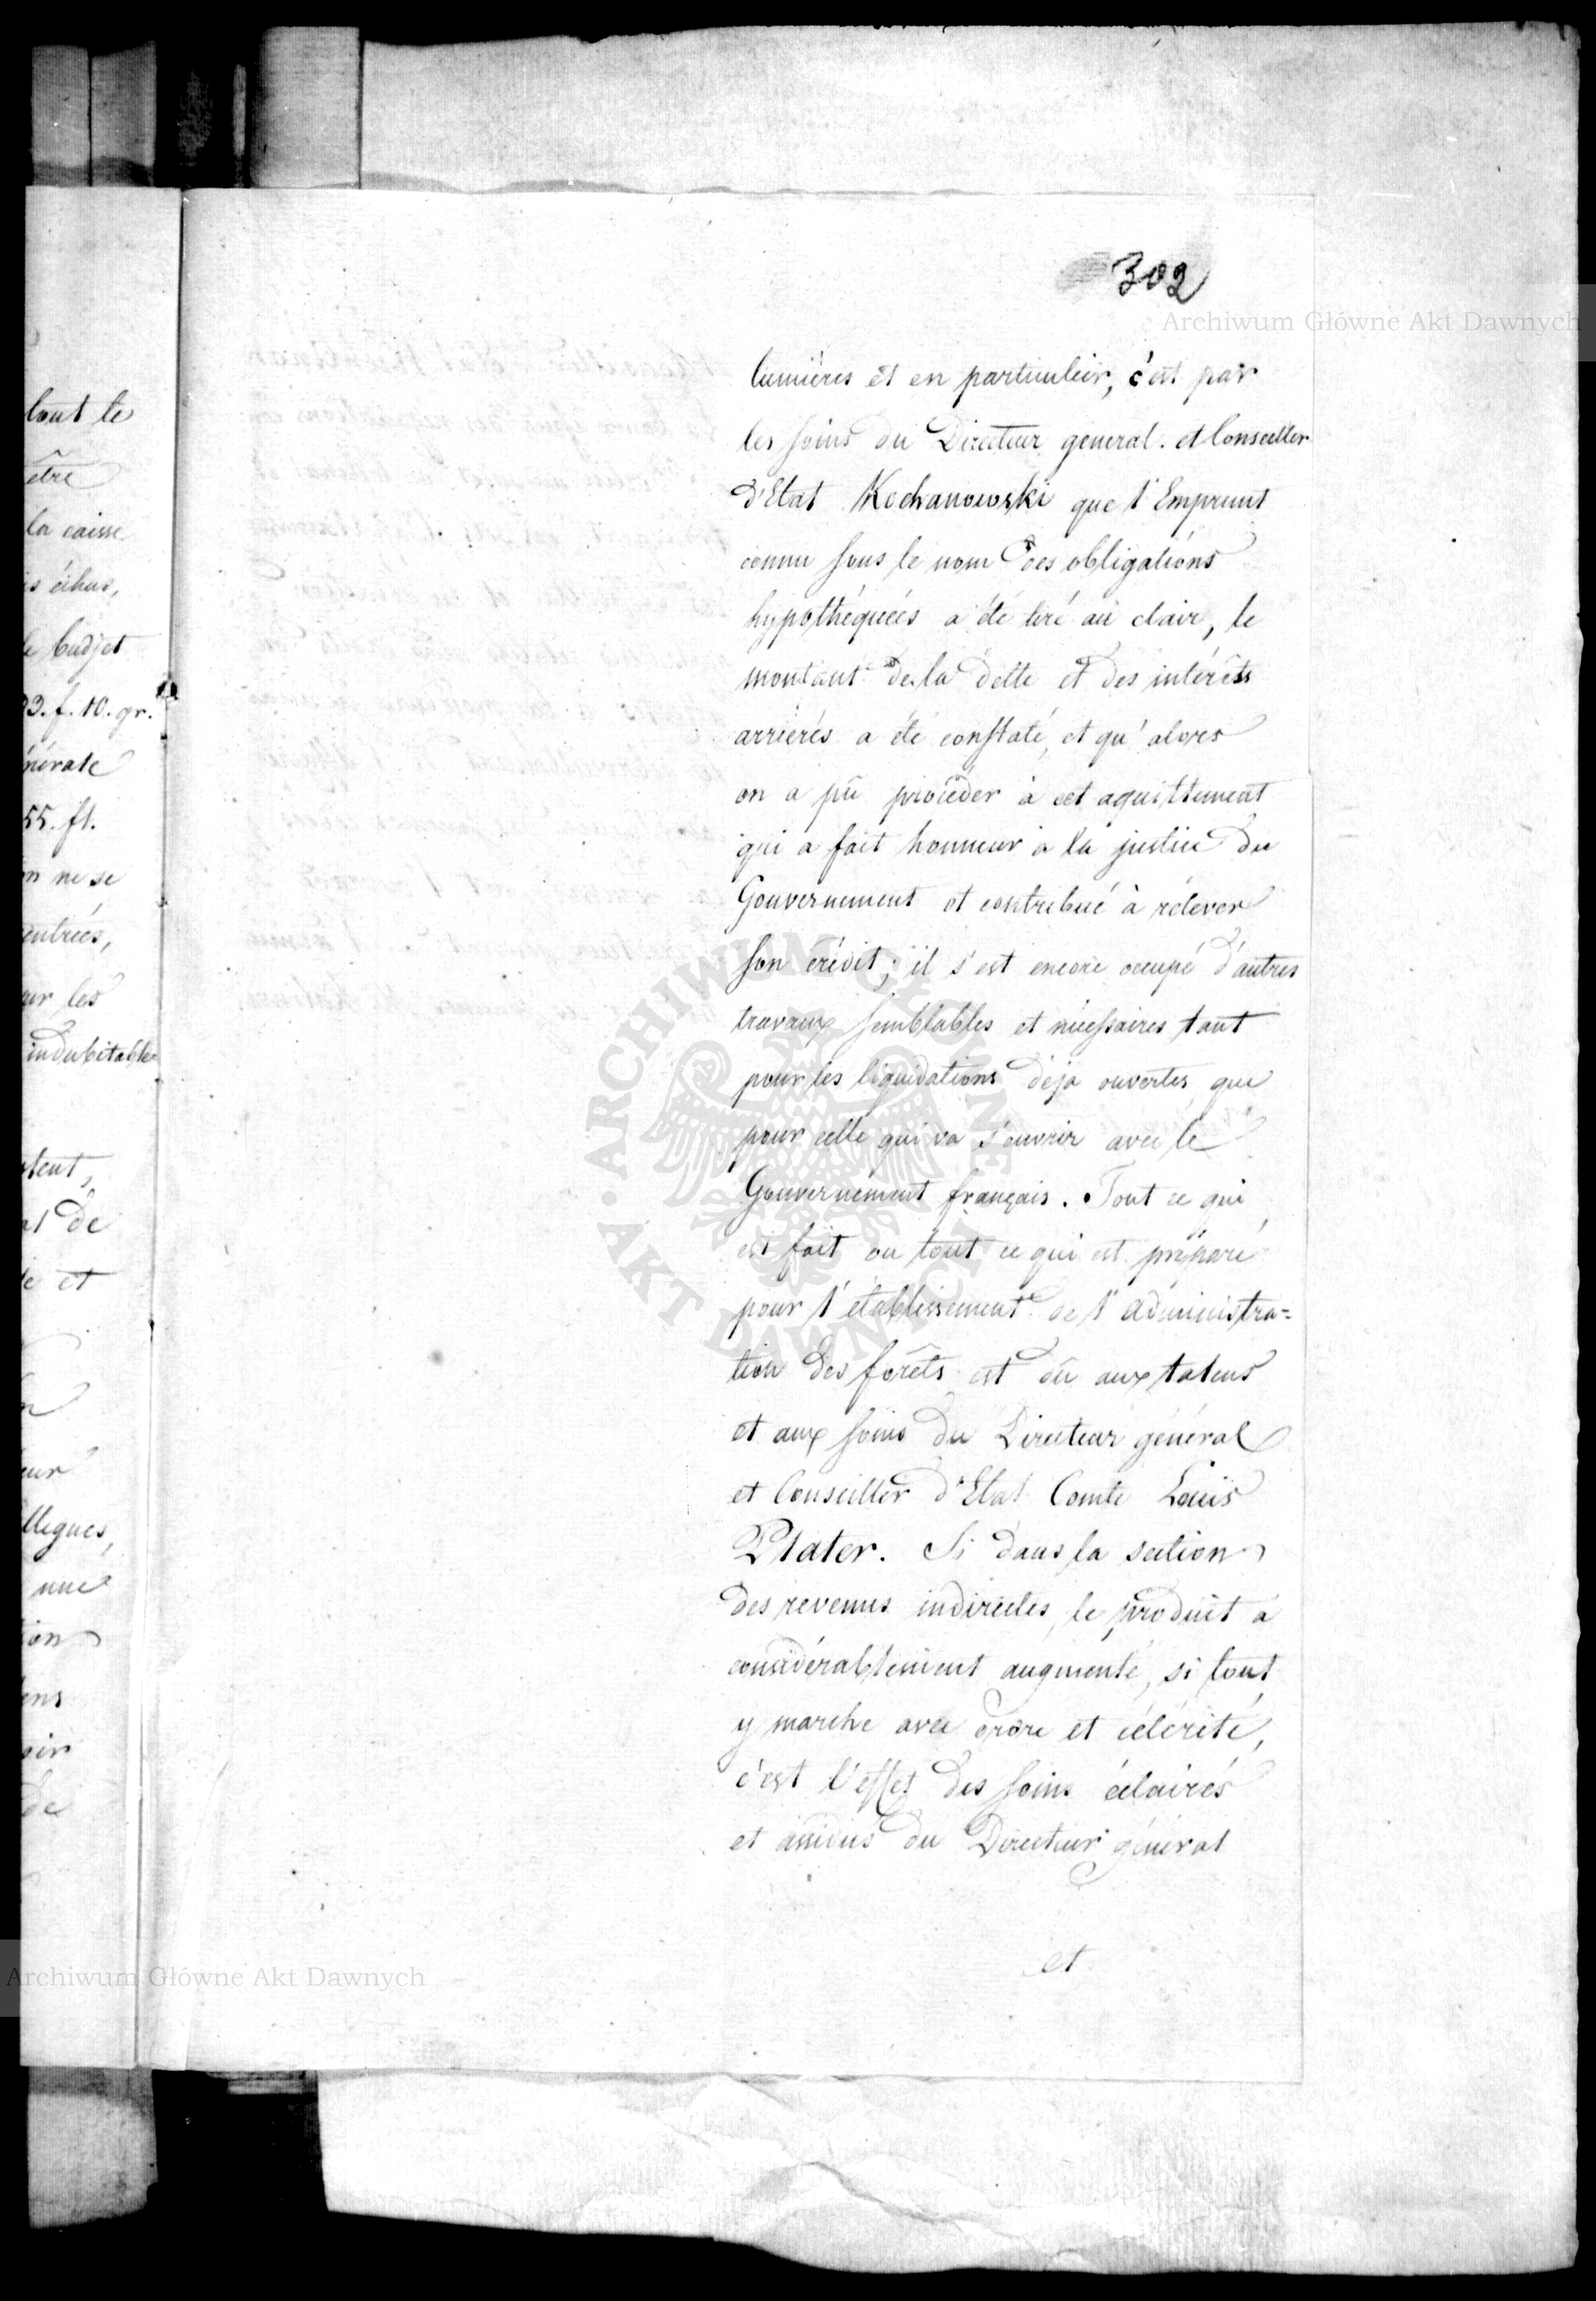 302
Archiwum Główne Akt Dawnych
lumières et en particulier, c'est par
les soins du Directeur general. et Conseiller
d'Etat Kochanowski que l'Emprunt
connu sous le nom des obligations
hypothéquées a été tiré au clair, le
montant de la dette et des intérêts
arrièrés a été constaté, et qu'alors
on a pû procéder à cet aquittement
qui a fait honneur à la justice du
Gouvernement et contribué à rélever
son crédit; il s'est encore occupé d'autres
travaux semblables et nécessaires tant
pour les liquidations déja ouvertes, que
pour celle qui va s'ouvrir avec le
Gouvernement français. Tout ce qui
est fait ou tout ce qui est préparé
pour l'établissement de l'administra=
tion des forêts est dû aux talens
et aux soins du Directeur général
et Conseiller d'Etat Comte Louis
Plater. Si dans la section
des revenus indirectes, le produit a
considérablement augmenté, si tout
y marche avec ordre et célérité,
c'est l'effet des soins éclairés
et assidus du Directeur général
et
tout le
être
la caisse
échus,
budjet
3. f. 10. gr.
55. fl.
ne se
les
indubitable
de
et
une
ARCHIWUM GŁÓWNE AKT DAWNYCH
Archiwum Główne Akt Dawnych